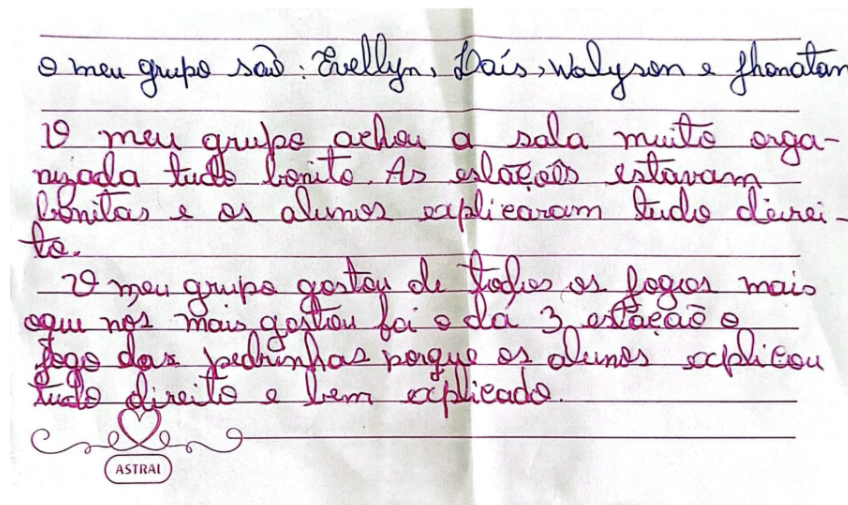 O meu grupo são: Evellyn, Laís, Walyson e Jhonatan
O meu grupo achou a sala muito orga-
nizada tudo bonito. As estações estavam
bonitas e os alunos explicaram tudo direi-
to.
O meu grupo gostou de todos os jogos mais
oque nós mais gostou foi o da 3 estação o
jogo das pedrinhas porque os alunos explicou
tudo direito e bem explicado.
ASTRAL